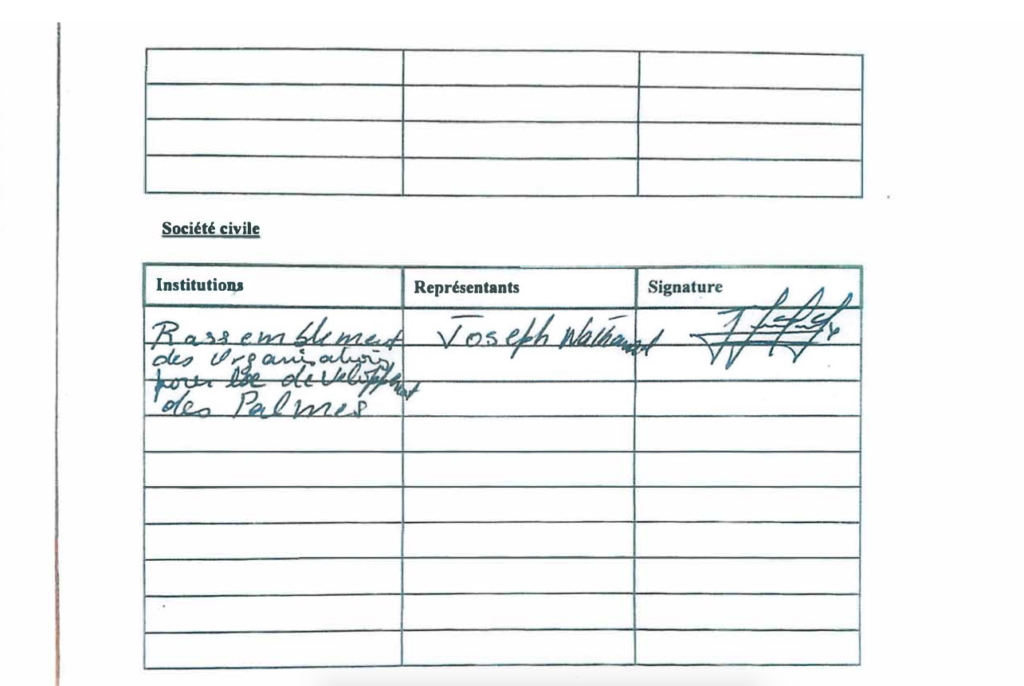 Société civile
Institutions Représentants Signature
Rassemblement Joseph
des Organisations
pour le développement
des Palmes